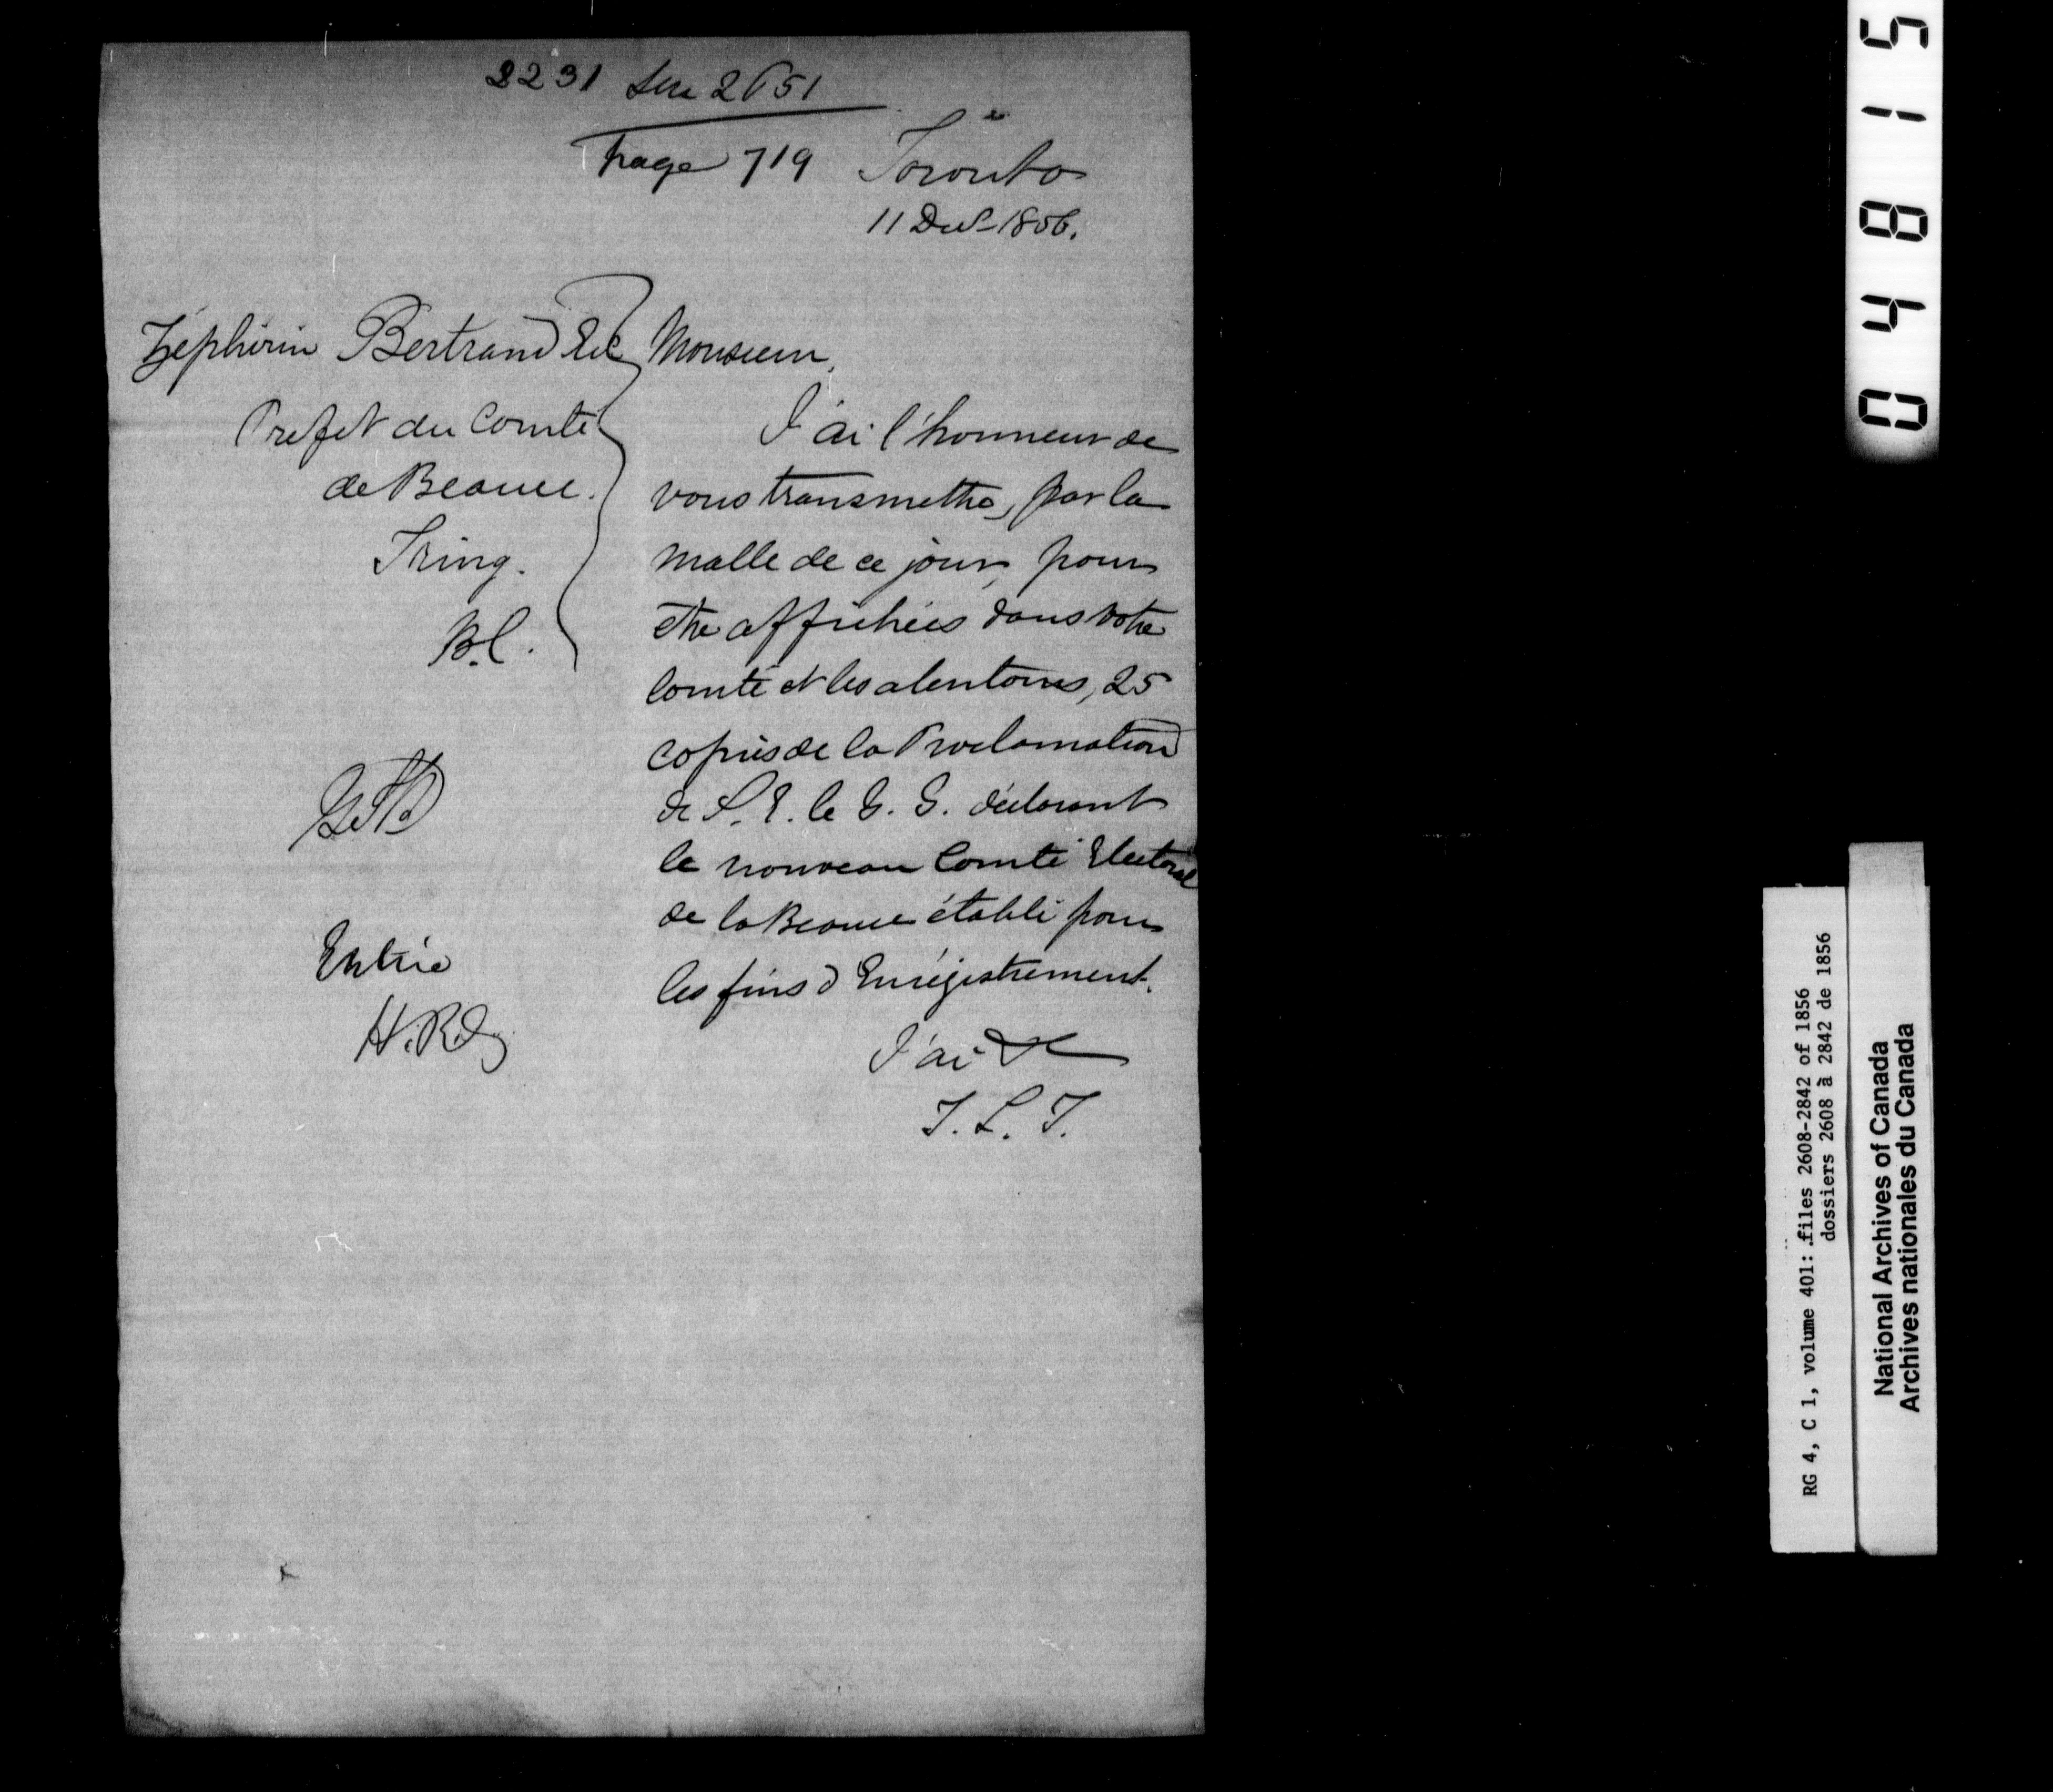 2231 sur 2651
page 719 Toronto
11 Decr 1856.
Zéphirin Bertrand Ecr
Prefet du Comté
de Beauce.
Tring.
B.C.
Monsieur,
J'ai l'honneur de
vous transmettre, par la
malle de ce jour, pour
etre affichées dans votre
Comté et les alentours, 25
copies de la Proclamation
de S. E. le G. G. déclarant
le nouveau Comté Electoral
de la Beauce établi pour
les fins d'Enrégistrement.
J'ai &c
T. L. T.
Entrée
04815
RG 4, C 1, volume 401: files 2608-2842 of 1856
dossiers 2608 à 2842 de 1856
National Archives of Canada
Archives nationales du Canada